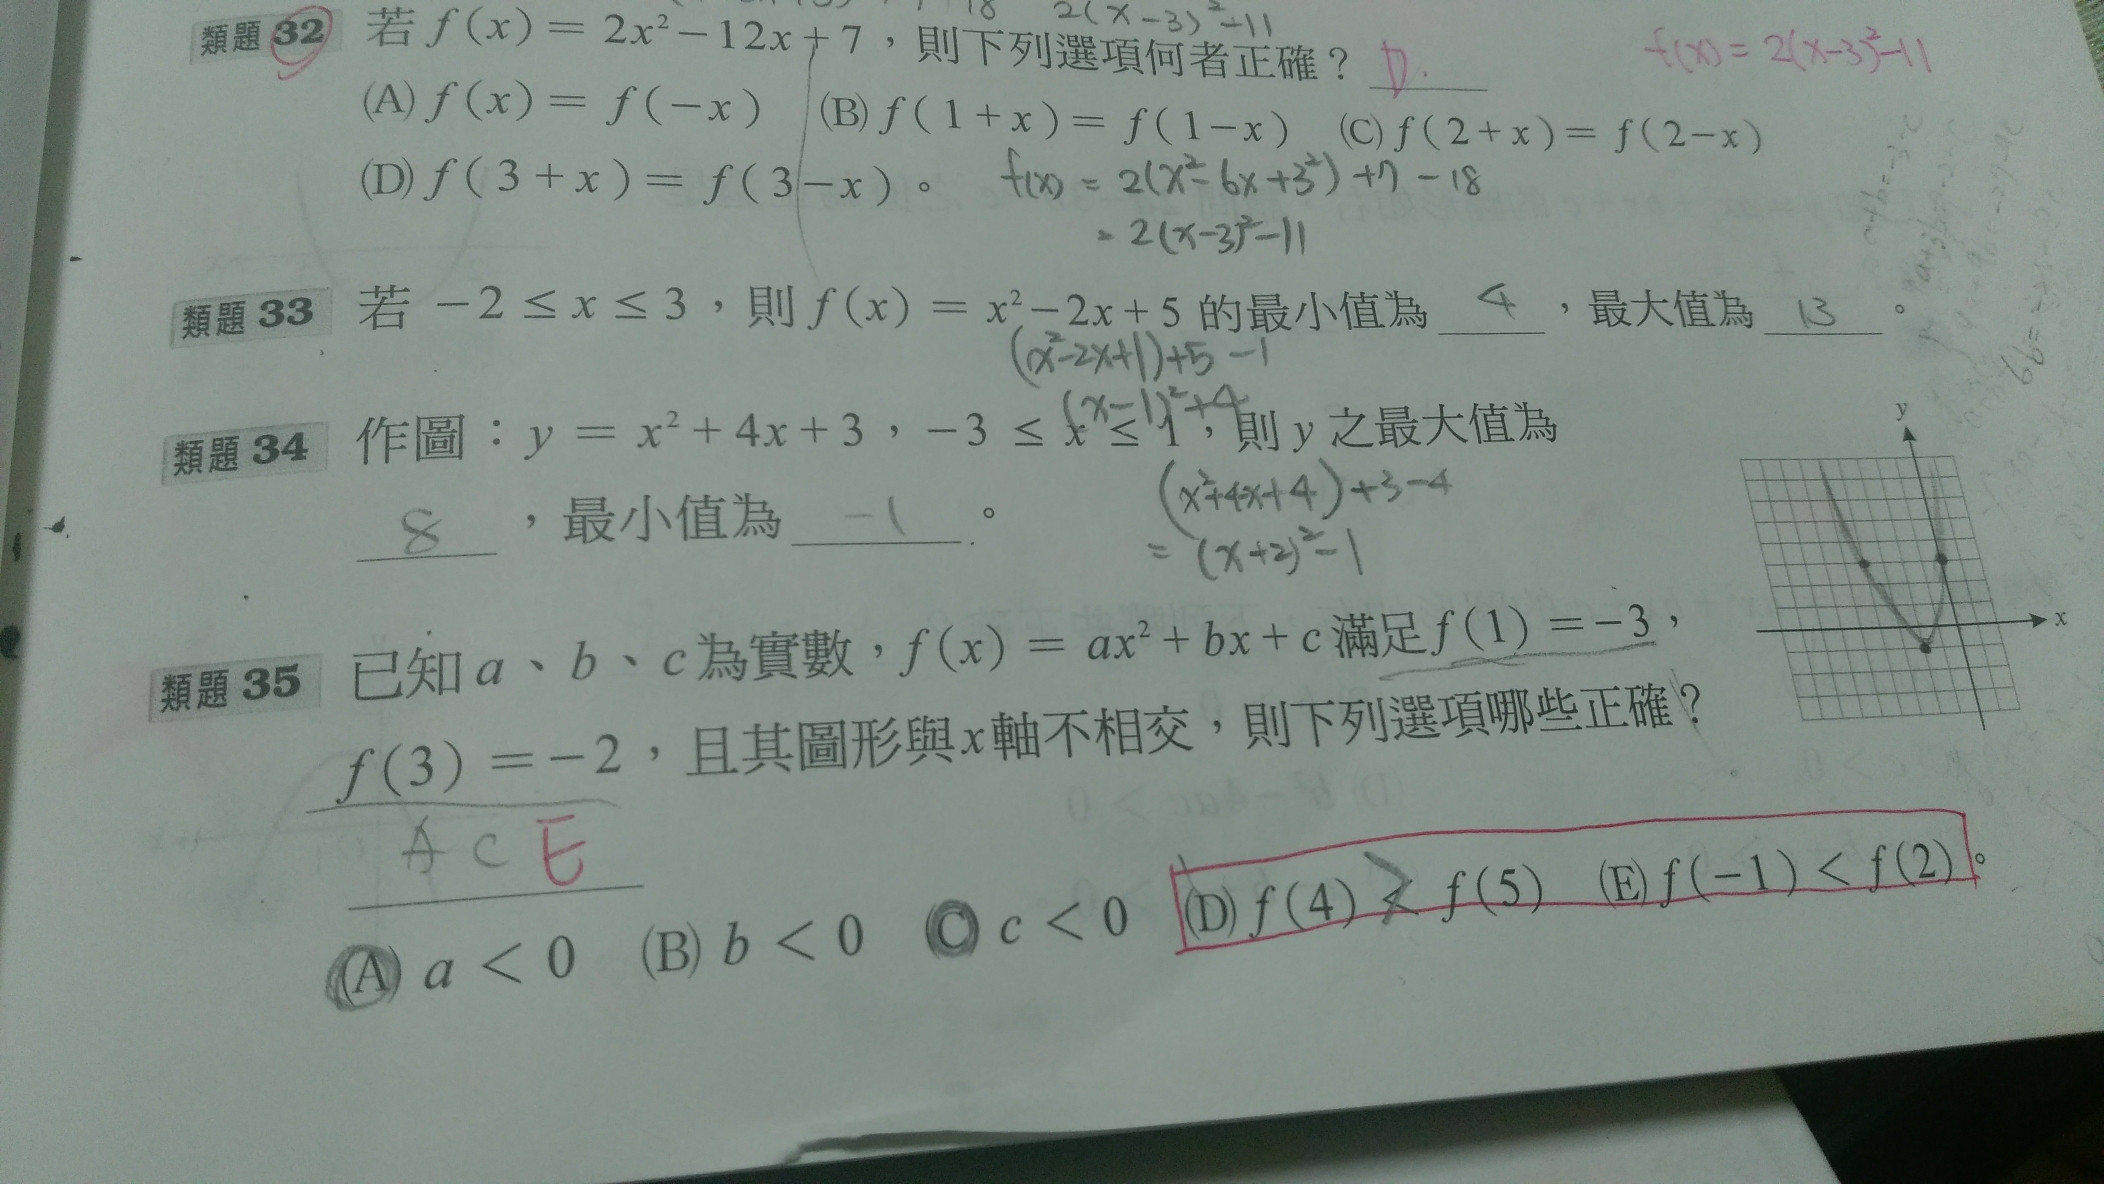 18 2(x-3)²-11
類題 32 若 f(x) = 2x² - 12x + 7，則下列選項何者正確？ D. f(x) = 2(x-3)²-11
(A) f(x) = f(-x) (B) f(1+x) = f(1-x) (C) f(2+x) = f(2-x)
(D) f(3+x) = f(3-x)。 f(x) = 2(x²-6x+3²)+7-18
= 2(x-3)²-11
類題 33 若 -2 ≤ x ≤ 3，則 f(x) = x² - 2x + 5 的最小值為 4，最大值為 13。
(x²-2x+1)+5-1
(x-1)²+4
類題 34 作圖：y = x² + 4x + 3，-3 ≤ x ≤ 1，則 y 之最大值為
8，最小值為 -1。
(x²+4x+4)+3-4
= (x+2)²-1
y
x
類題 35 已知 a、b、c 為實數，f(x) = ax² + bx + c 滿足 f(1) = -3，
f(3) = -2，且其圖形與 x 軸不相交，則下列選項哪些正確？
A C E
(A) a < 0 (B) b < 0 (C) c < 0 (D) f(4) < f(5) (E) f(-1) < f(2)。